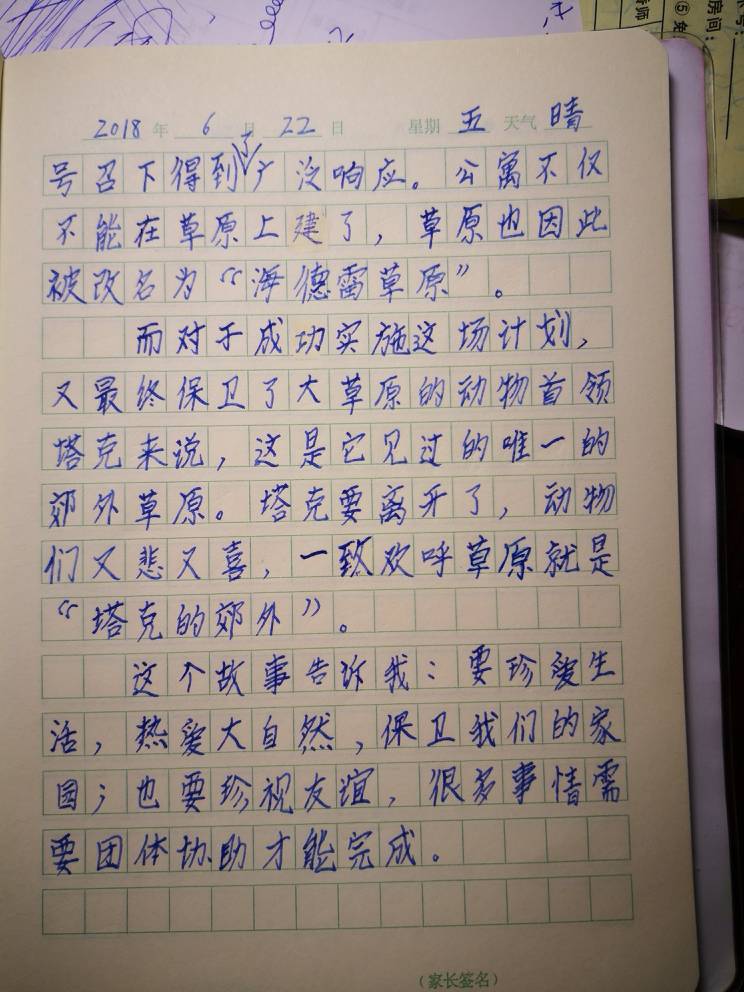 房间：
⑤ 免
2018 年 6 月 22 日 星期 五 天气 晴
号召下得到了广泛响应。公寓不仅
不能在草原上建了，草原也因此
被改名为“海德雷草原”。
而对于成功实施这场计划，
又最终保卫了大草原的动物首领
塔克来说，这是它见过的唯一的
郊外草原。塔克要离开了，动物
们又悲又喜，一致欢呼草原就是
“塔克的郊外”。
这个故事告诉我：要珍爱生
活，热爱大自然，保卫我们的家
园；也要珍视友谊，很多事情需
要团体协助才能完成。
（家长签名）